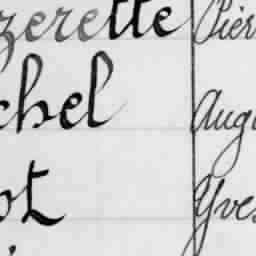 zerette Pier
chel Augu
ot Yves